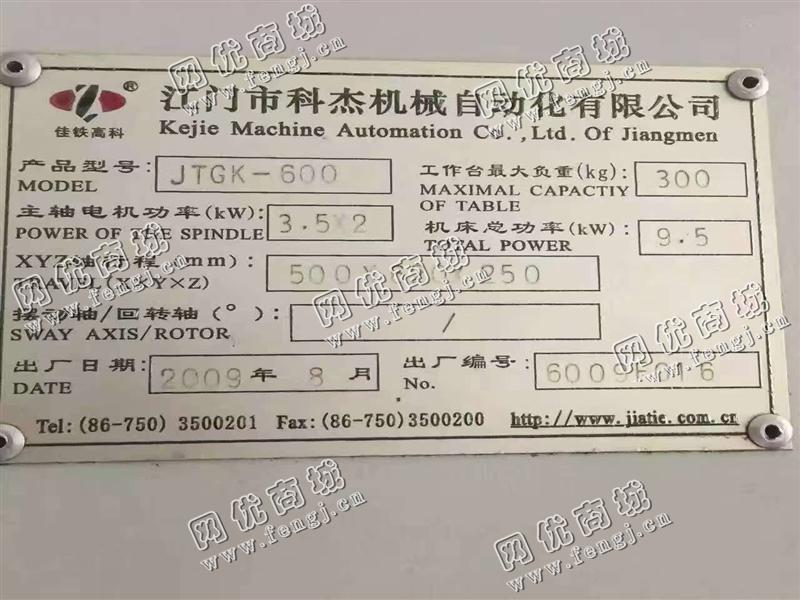 佳铁高科 ®
江门市科杰机械自动化有限公司
Kejie Machine Automation Co.,Ltd. Of Jiangmen
产品型号: JTGK-600
MODEL
工作台最大负重(kg): 300
MAXIMAL CAPACTIY
OF TABLE
主轴电机功率(kW): 3.5×2
POWER OF THE SPINDLE
机床总功率(kW): 9.5
TOTAL POWER
XYZ轴行程(mm): 500 250
TRAVEL(X×Y×Z)
摆动轴/回转轴(°): /
SWAY AXIS/ROTOR
出厂日期: 2009年 8月
DATE
出厂编号:
No.
Tel:(86-750) 3500201 Fax:(86-750)3500200 http://www.jiatie.com.cn
网优商城
www.fengj.cn
网优商城
www.fengj.cn
网优商城
www.fengj.cn
网优商城
www.fengj.cn
网优商城
www.fengj.cn
网优商城
www.fengj.cn